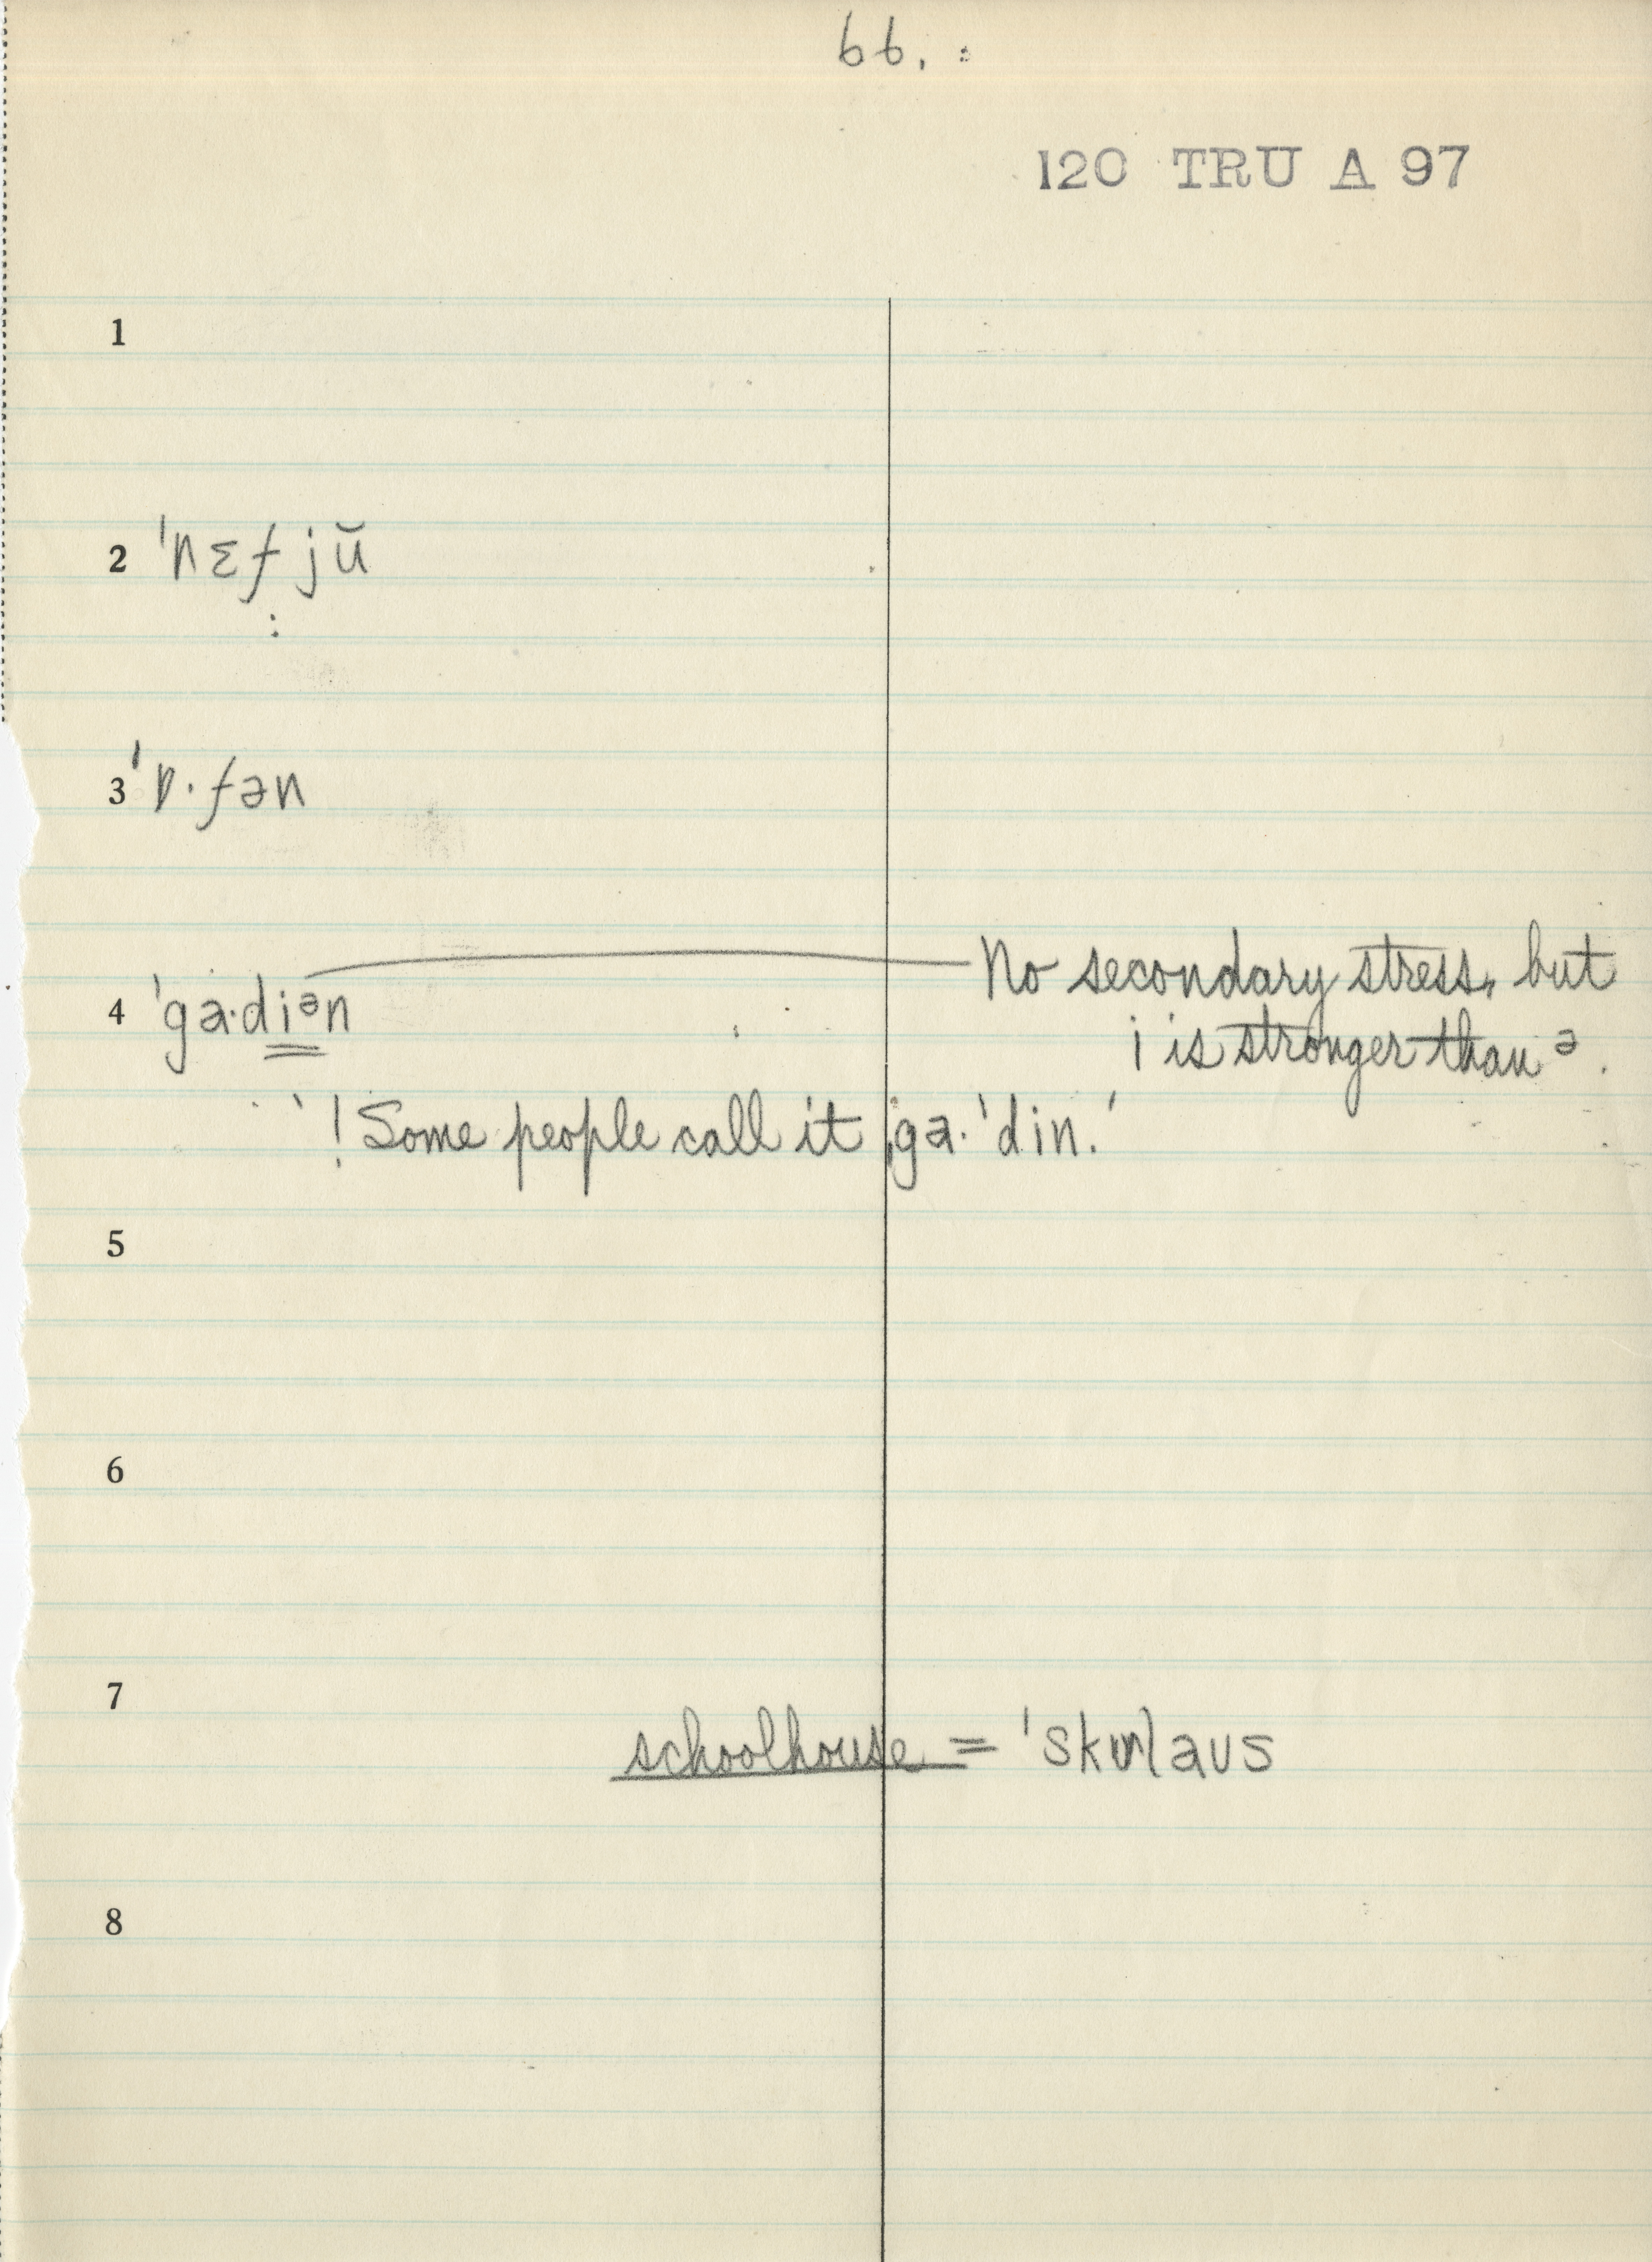 66. :
120 TRU A 97
1
2 ˈnɛf jŭ
:
3 ˈɒ·fən
4 ˈga·diᵊn
No secondary stress, but
i is stronger than ᵊ.
`! Some people call it ˌga·ˈdin.'
5
6
7
schoolhouse = ˈskʊlaus
8